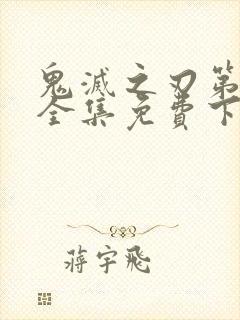 鬼滅之刃第
全集免費下
蔣宇飛